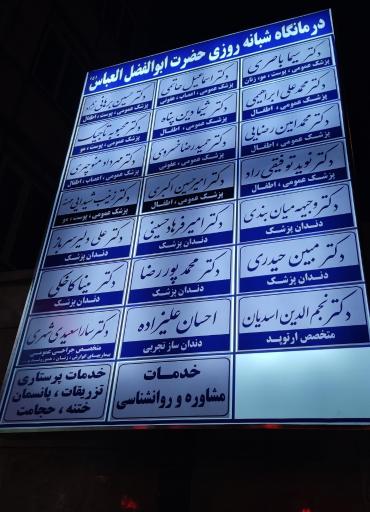 درمانگاه شبانه روزی حضرت ابوالفضل العباس (ع)
دکتر سیما باصری
پزشک عمومی ، پوست ، مو، زنان
دکتر اسماعیل حاتمی
پزشک عمومی ، اعصاب ، عفونی
دکتر حسین برهانی
پزشک عمومی ، پوست ، اطفال
دکتر محمدعلی ابراهیمی
پزشک عمومی ، اطفال
دکتر شیما دین پناه
پزشک عمومی ، اطفال
دکتر محبوبه تاجیک
پزشک عمومی ، پوست ، مو
دکتر محمدامین رضایی
پزشک عمومی ، اطفال
دکتر حمید رضا خسروی
پزشک عمومی ، عفونی
دکتر مهرداد منوچهری
پزشک عمومی ، اعصاب ، اطفال
دکتر نوید توفیقی راد
پزشک عمومی ، اطفال
دکتر امیرحسین اکبری
پزشک عمومی ، اطفال
دکتر زینب
پزشک عمومی ، پوست ، مو
دکتر وجیهه میان بندی
دندان پزشک
دکتر امیر فرهاد حسینی
دندان پزشک
دکتر علی دلیر سرباز
دندان پزشک
دکتر مبین حیدری
دندان پزشک
دکتر محمد پوررضا
دندان پزشک
دکتر مینا کاخکی
دندان پزشک
دکتر نجم الدین اسدیان
متخصص ارتوپد
احسان علیزاده
دندان ساز تجربی
دکتر سارا سعیدی
متخصص جراحی عمومی
خدمات
مشاوره و روانشناسی
خدمات پرستاری
تزریقات ، پانسمان
ختنه ، حجامت